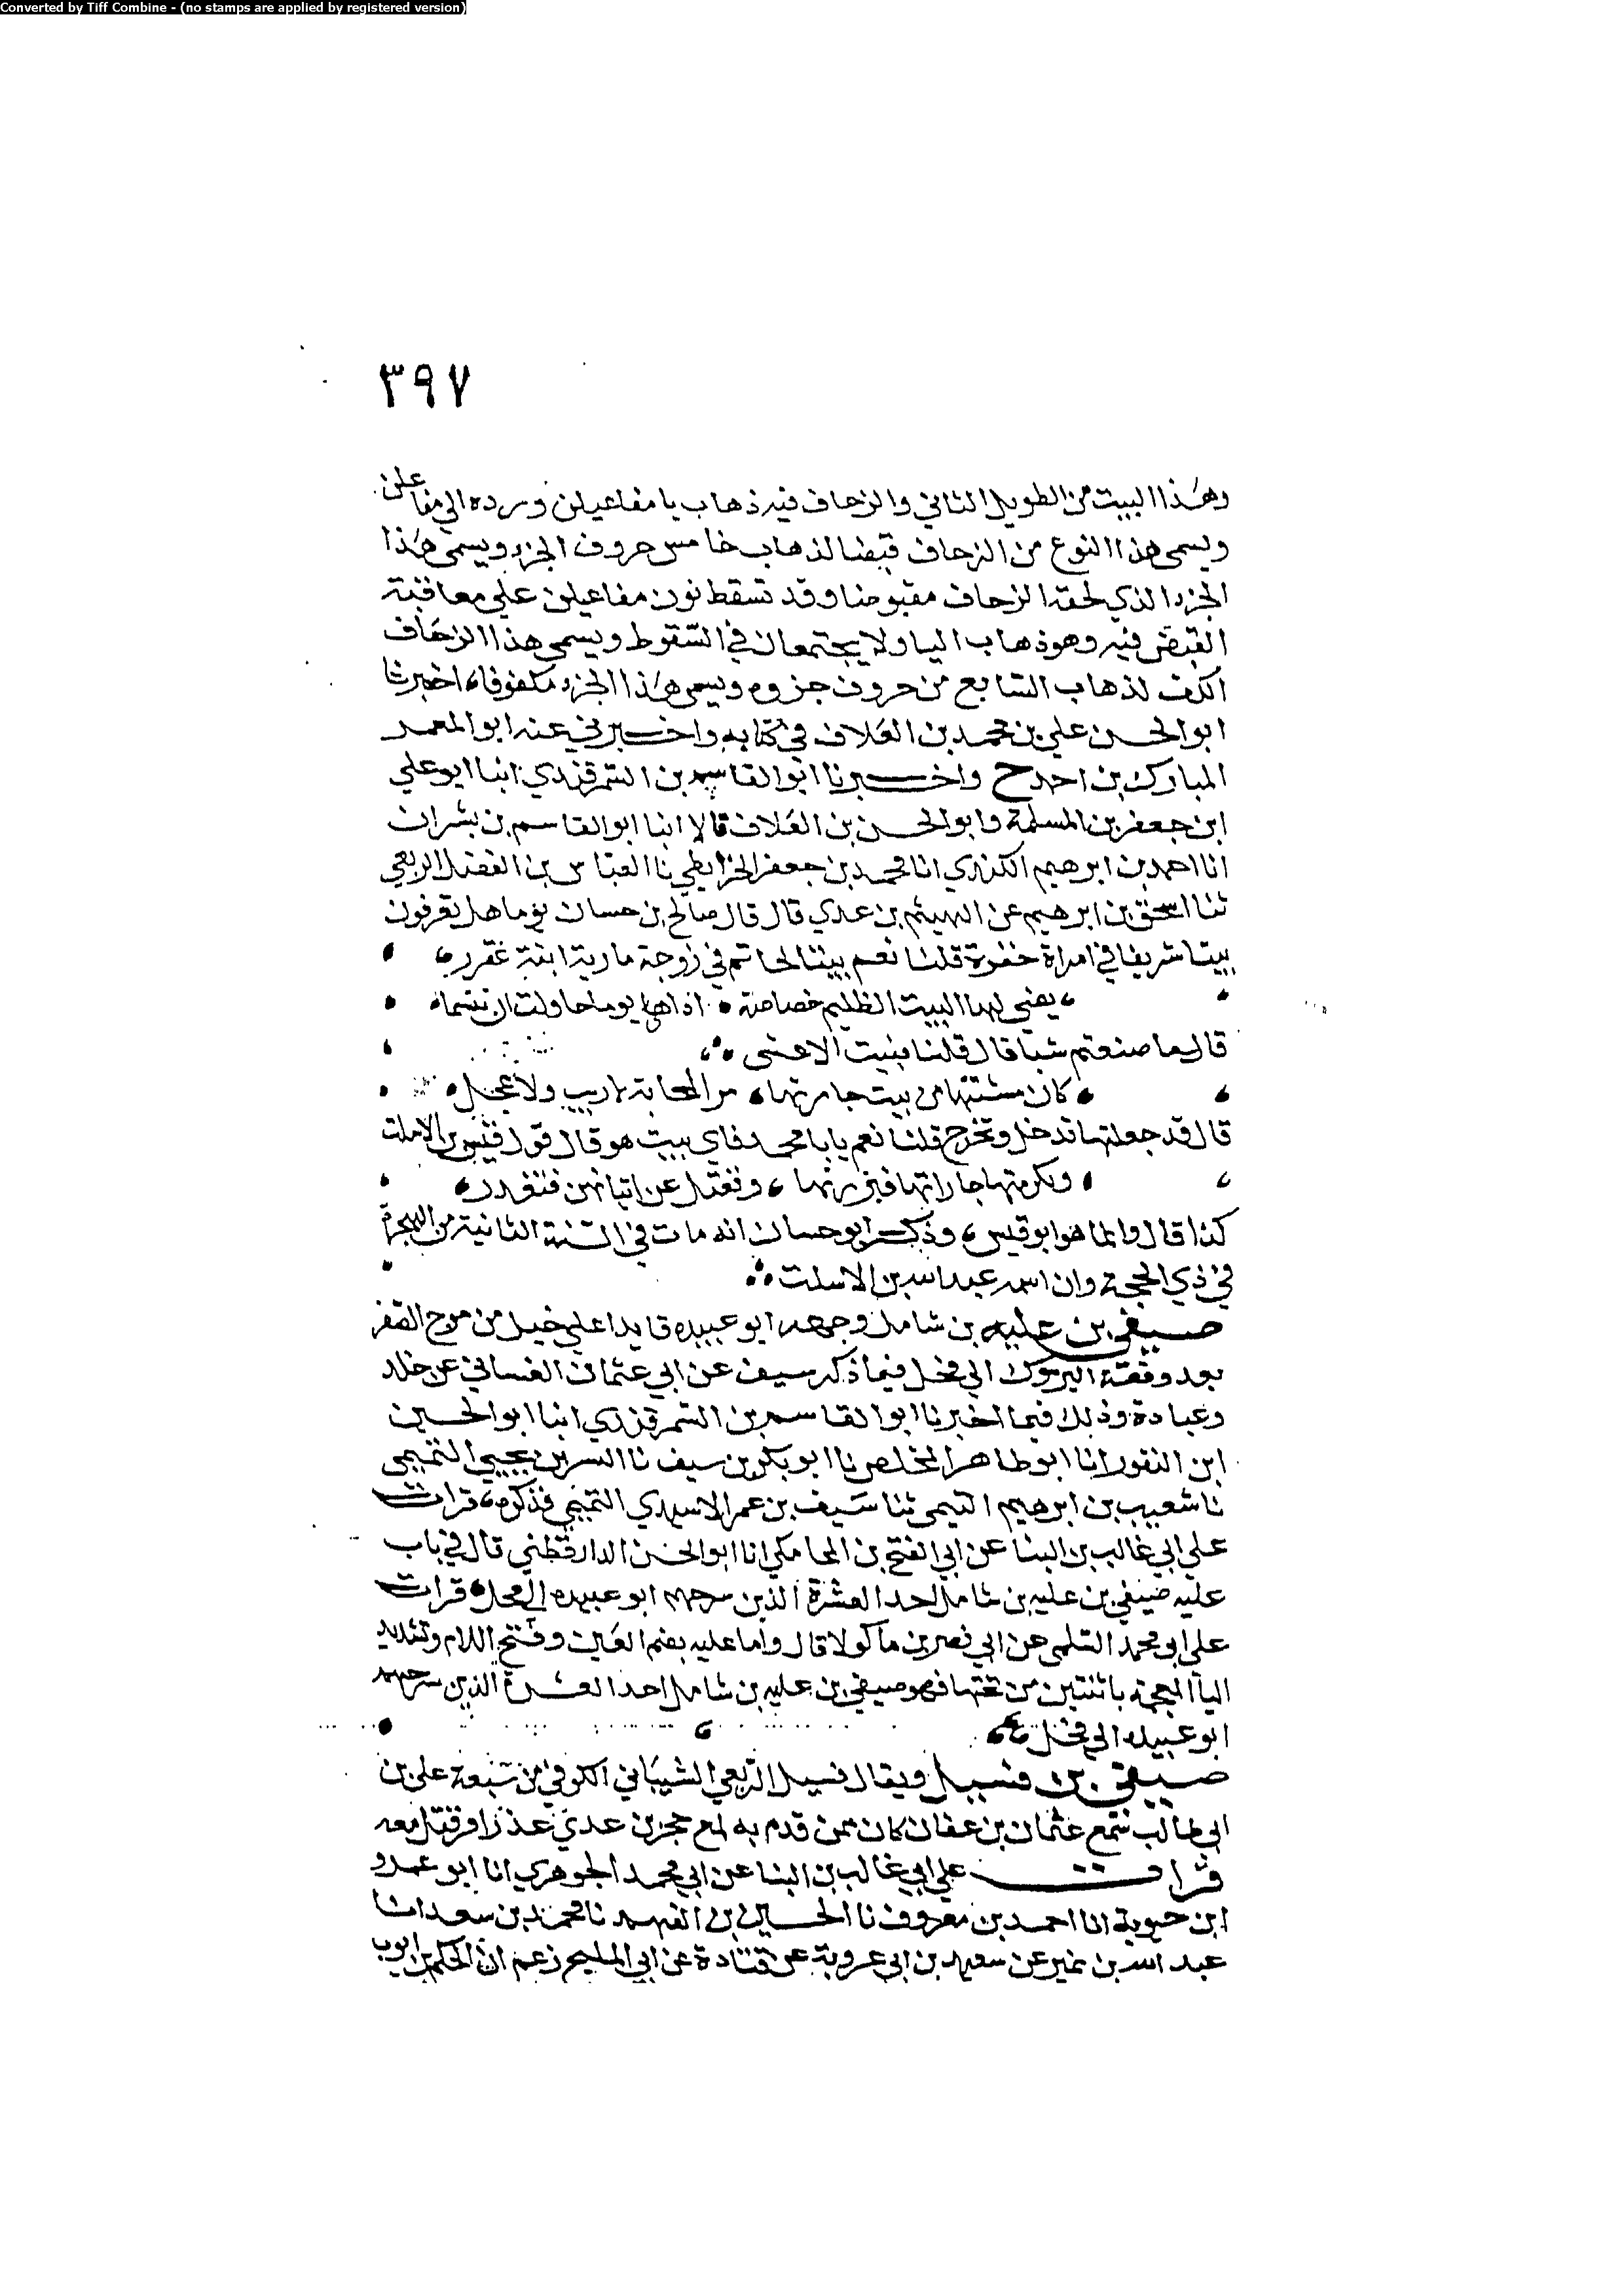 Converted by Tiff Combine - (no stamps are applied by registered version)
٣٩٧
وهذا البيت من الطويل الثاني والزحاف فيه ذهاب يا مفاعيلن ورده الي مفاعلن
ويسمى هذا النوع من الزحاف قبضا لذهاب خامس حروف الجزء ويسمى هذا
الجزء الذي لحقه الزحاف مقبوضا وقد تسقط نون مفاعيلن علي معاقبة
القبض فيه وهو ذهاب اليا ولا يجتمعان في السقوط ويسمى هذا الزحاف
الكف لذهاب السابع من حروف جزوه ويسمى هذا الجزء مكفوفا، اخبرنا
ابو الحسن علي بن محمد بن العلاف في كتابه واخبرني عنه ابو المعمر
المبارك بن احمد ح واخبرنا ابو القاسم بن السمرقندي انبا ابو علي
ابن جعفر بن المسلمة وابو الحسن بن العلاف قالا انبا ابو القاسم بن بشران
انا احمد بن ابرهيم الكندي انا محمد بن جعفر الخرايطي نا العباس بن الفضل الربعي
ثنا اسحق بن ابرهيم عن الهيثم بن عدي قال قال صالح بن حسان يوما هل تعرفون
بيتا شريفا في امراة خفرة قلنا نعم بيتا لحاتم في زوجة مارية ابنة عفزر،
، يضي لها البيت الظليم خصاصة • اذا هي يوما حاولت ان تبسما،
قال ما صنعتم شيا قال قلنا فبيت الاعشى
• كان مشيتها من بيت جارتها • مر السحابة لا ريب ولا عجل •
قال قد جعلتها تدخل وتخرج قلنا نعم يا با محمد فاي بيت هو قال قول قيس بن الاسلت
• ويكرمنها جاراتها فيزرنها ، وتعتل عن اتيانهن فتعذر •
كذا قال وانما هو ابو قيس، وذكر ابو حسان انه مات في السنة الثانية من الهجرة
في ذي الحجة وان اسمه عبد الله بن الاسلت
صيفي بن عليه بن شامل وجهه ابو عبيده قايدا علي خيل من مرج الصفر
بعد وقعة اليرموك الي فحل فيما ذكر سيف عن ابي عثمان الغساني عن خالد
وعبادة وذلك فيما اخبرنا ابو القاسم بن السمرقندي انبا ابو الحسين
ابن النقور انا ابو طاهر المخلص نا ابو بكر بن سيف نا السري بن يحيي التميمي
نا شعيب بن ابرهيم التيمى ثنا سيف بن عمر الاسيدي التميمي فذكره، قرات
علي ابي غالب بن البنا عن ابي الفتح بن المحاملي انا ابو الحسن الدارقطني قال في باب
عليه صيفي بن عليه بن شامل احد العشرة الذين سرحهم ابو عبيده الي فحل، قرات
علي ابو محمد السلمى عن ابي نصر بن ماكولا قال واما عليه بضم العين وفتح اللام وتشديد
اليا المعجمة باثنتين من تحتها فهو صيفي بن عليه بن شامل احد العشرة الذين سرحهم
ابو عبيده الي فحل
صيفي بن فسيل ويقال فسيل الربعي الشيباني الكوفي من شيعة علي بن
ابي طالب سمع عثمان بن عفان كان ممن قدم به مع حجر بن عدي عذرا فقتل معه
قرات علي ابي غالب بن البنا عن ابي محمد الجوهري انا ابو عمرو
ابن حيوية انا احمد بن معروف نا الحسين بن الفهم نا محمد بن سعد انا
عبد الله بن نمير عن سعيد بن ابي عروبة عن قتادة عن ابي المليح زعم ان الحكم بن ايوب